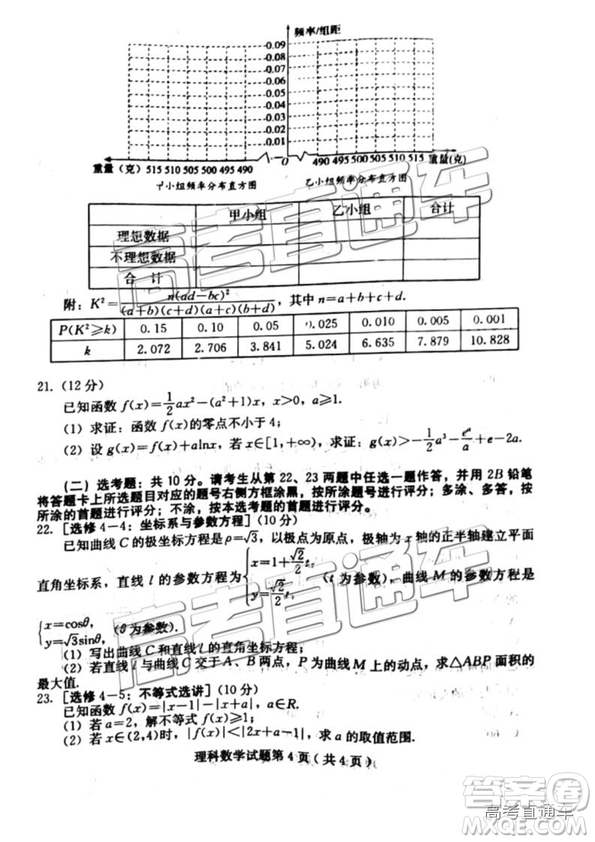 频率/组距
0.09
0.08
0.07
0.06
0.05
0.04
0.03
0.02
0.01
重量(克) 515 510 505 500 495 490 0 490 495 500 505 510 515 重量(克)
甲小组频率分布直方图 乙小组频率分布直方图
甲小组 乙小组 合计
理想数据
不理想数据
合 计
附:K²=n(ad-bc)²/(a+b)(c+d)(a+c)(b+d),其中n=a+b+c+d.
P(K²≥k) 0.15 0.10 0.05 0.025 0.010 0.005 0.001
k 2.072 2.706 3.841 5.024 6.635 7.879 10.828
21.(12分)
已知函数 f(x)=1/2ax²-(a²+1)x,x>0,a≥1.
(1)求证:函数f(x)的零点不小于4;
(2)设g(x)=f(x)+alnx,若x∈[1,+∞),求证:g(x)>-1/2a³-eᵃ/a+e-2a.
(二)选考题:共10分。请考生从第22、23两题中任选一题作答,并用2B铅笔
将答题卡上所选题目对应的题号右侧方框涂黑,按所涂题号进行评分;多涂、多答,按
所涂的首题进行评分;不涂,按本选考题的首题进行评分。
22.[选修4-4:坐标系与参数方程](10分)
已知曲线C的极坐标方程是ρ=√3,以坐标原点为极点,极轴为x轴的正半轴建立平面
直角坐标系,直线l的参数方程为{x=1+√2/2t, y=√2/2t (t为参数).曲线M的参数方程是
{x=cosθ, y=√3sinθ (θ为参数).
(1)写出曲线C和直线l的直角坐标方程;
(2)若直线l与曲线C交于A、B两点,P为曲线M上的动点,求△ABP面积的
最大值.
23.[选修4-5:不等式选讲](10分)
已知函数f(x)=|x-1|-|x+a|,a∈R.
(1)若a=2,解不等式f(x)>1;
(2)若x∈(2,4)时,|f(x)|<|2x+a-1|,求a的取值范围.
理科数学试题第4页(共4页)
高考直通车
高考直通车
答案圈
高考直通车
MXQE.COM